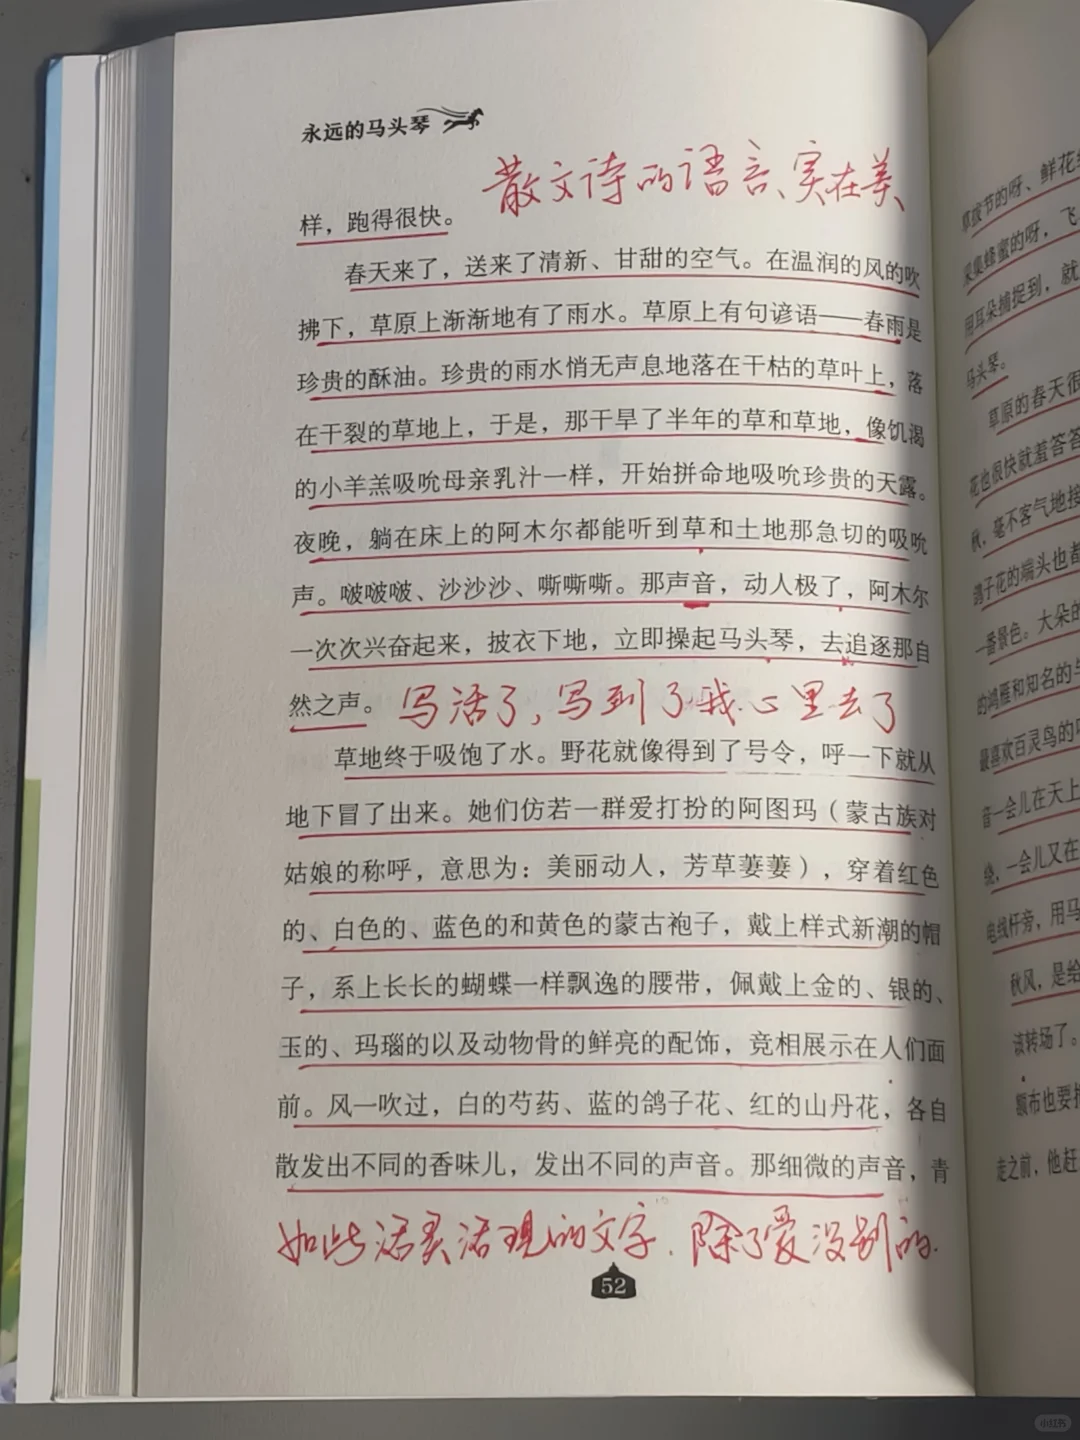 永远的马头琴
散文诗的语言、实在美
样，跑得很快。
春天来了，送来了清新、甘甜的空气。在温润的风的吹
拂下，草原上渐渐地有了雨水。草原上有句谚语——春雨是
珍贵的酥油。珍贵的雨水悄无声息地落在干枯的草叶上，落
在干裂的草地上，于是，那干旱了半年的草和草地，像饥渴
的小羊羔吸吮母亲乳汁一样，开始拼命地吸吮珍贵的天露。
夜晚，躺在床上的阿木尔都能听到草和土地那急切的吸吮
声。啵啵啵、沙沙沙、嘶嘶嘶。那声音，动人极了，阿木尔
一次次兴奋起来，披衣下地，立即操起马头琴，去追逐那自
然之声。
写活了，写到了我心里去了
草地终于吸饱了水。野花就像得到了号令，呼一下就从
地下冒了出来。她们仿若一群爱打扮的阿图玛（蒙古族对
姑娘的称呼，意思为：美丽动人，芳草萋萋），穿着红色
的、白色的、蓝色的和黄色的蒙古袍子，戴上样式新潮的帽
子，系上长长的蝴蝶一样飘逸的腰带，佩戴上金的、银的、
玉的、玛瑙的以及动物骨的鲜亮的配饰，竞相展示在人们面
前。风一吹过，白的芍药、蓝的鸽子花、红的山丹花，各自
散发出不同的香味儿，发出不同的声音。那细微的声音，青
如此活灵活现的文字、除了爱没别的.
52
草拔节的呀、鲜花
采集蜂蜜的呀，飞
用耳朵捕捉到，就
马头琴。
草原的春天很
花也很快就羞答答
秋，毫不客气地接
鸽子花的端头也都
一番景色。大朵的
的鸿雁和知名的与
最喜欢百灵鸟的
音一会儿在天上
绕，一会儿又在
电线杆旁，用马
秋风，是给
该转场了。
额布也要
走之前，他赶
小红书